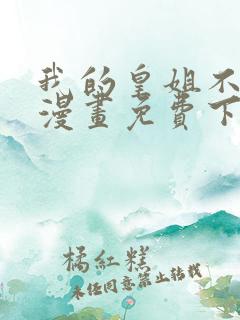 我的皇姐不
漫畫免費下
橘紅糕
未经同意禁止转载